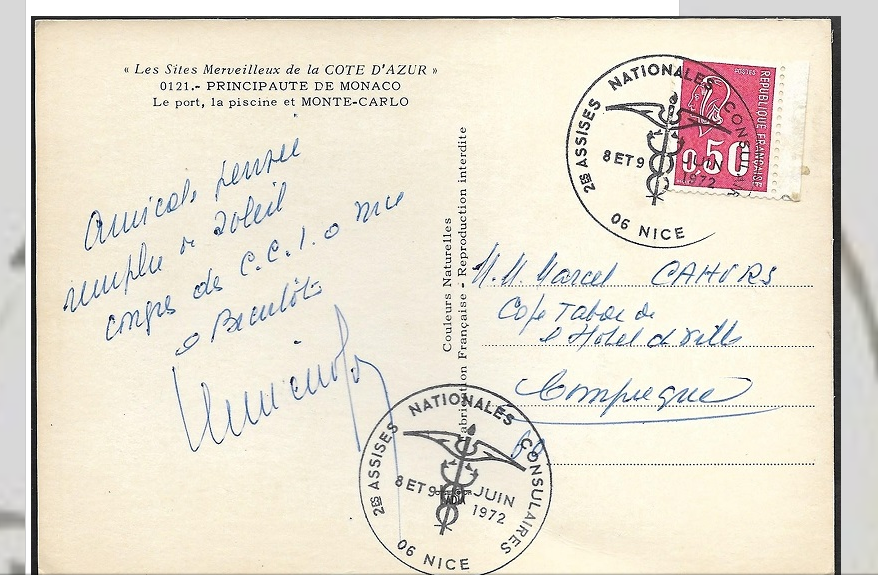 « Les Sites Merveilleux de la COTE D'AZUR »
0121.- PRINCIPAUTE DE MONACO
Le port, la piscine et MONTE-CARLO
Amicale pensée
remplie de Soleil
congrès des C.C.I. a Nice
a Bientôt
Couleurs Naturelles
Fabrication Française - Reproduction interdite
2ES ASSISES NATIONALES CONSULAIRES
8 ET 9 JUIN
1972
06 NICE
POSTES
REPUBLIQUE FRANÇAISE
0,50
M.M. Marcel CAHURS
Café Tabac de
l'Hôtel de Ville
Compiegne
60
2ES ASSISES NATIONALES CONSULAIRES
8 ET 9 JUIN
1972
06 NICE